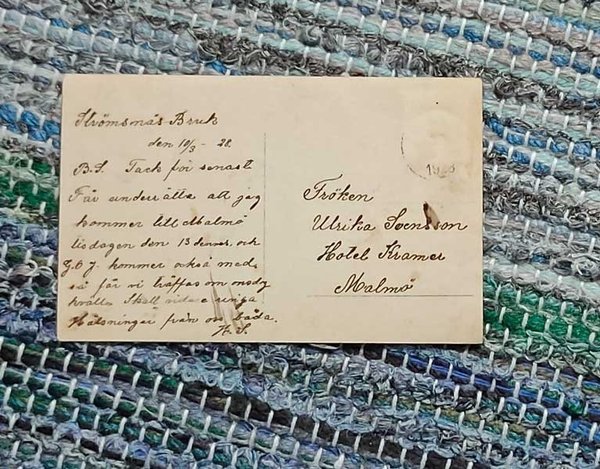 Strömsnäs Bruk
den 10/3 - 28.
B.S. Tack för senast
Får underrätta att jag
kommer till Malmö
tisdagen den 13 dennes, och
G.O.J. kommer också med,
så får vi träffas om
kväll. Skall vidare ringa
Hälsningar från oss båda.
A. S.
Fröken
Ulrika Svensson
Hotel Kramer
Malmö